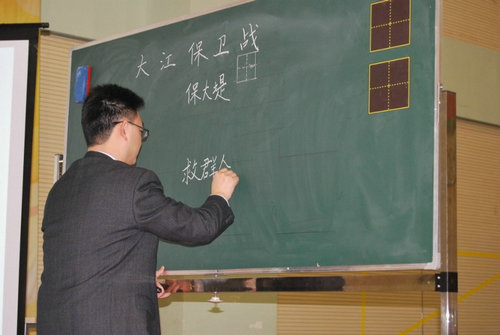 大江保卫战
保大堤
救群众